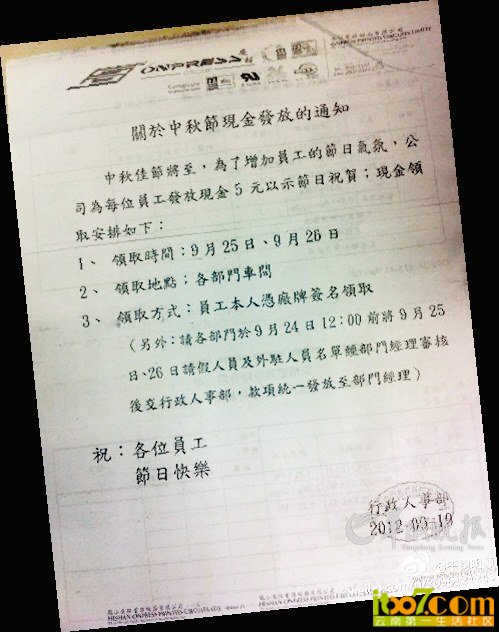 關於中秋節現金發放的通知
中秋佳節將至，為了增加員工的節日氣氛，公
司為每位員工發放現金5元以示節日祝賀；現金領
取安排如下：
1、領取時間：9月25日、9月26日
2、領取地點：各部門車間
3、領取方式：員工本人憑廠牌簽名領取
（另外：請各部門於9月24日12:00前將9月25
日、26日請假人員及外駐人員名單經部門經理審核
後交行政人事部，款項統一發放至部門經理）
祝：各位員工
節日快樂
行政人事部
2012-09-19
羊城晚報
Yangcheng Evening News
HESHAN ONPRESS PRINTED CIRCUITS LTD.
ibo7.com
云南第一生活社区